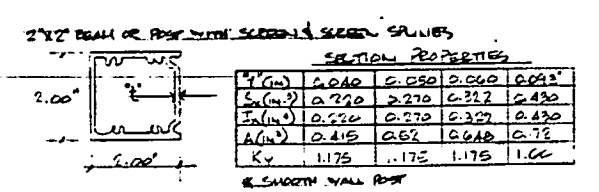 2"X2" BEAM OR POST WITH SCREEN & SCREEN SPLINES
SECTION PROPERTIES
2.00"
"t"
2.00"
"T"(IN) 0.040 0.050 0.060 0.093"
Sx(IN³) 0.220 0.270 0.322 0.430
Ix(IN⁴) 0.220 0.270 0.322 0.430
A(IN²) 0.415 0.52 0.648 0.72
Ky 1.175 1.175 1.175
* SMOOTH WALL POST